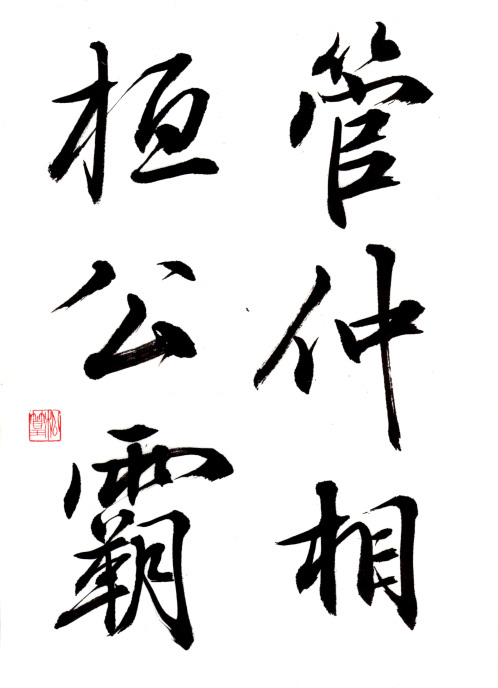 管仲相
桓公霸